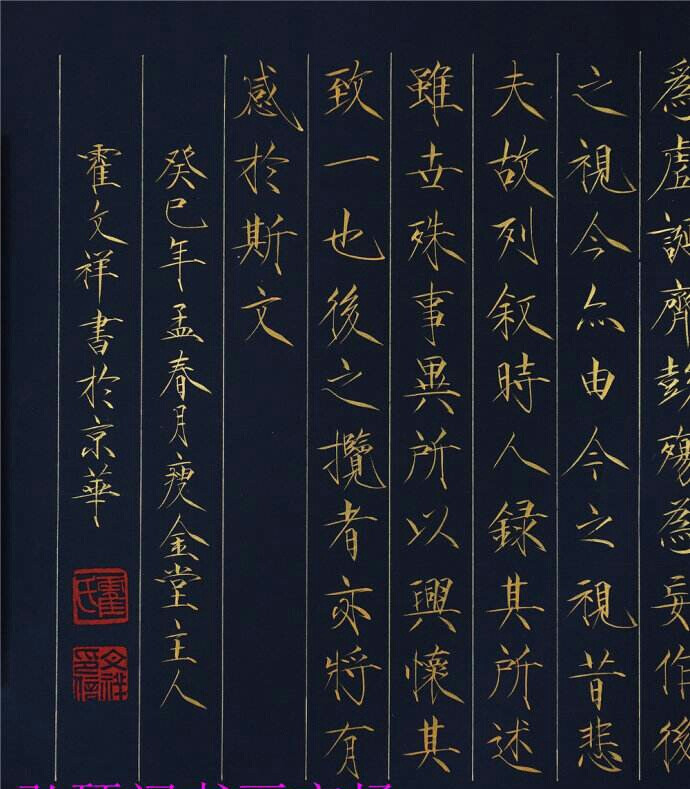 為虛誕齊彭殤為妄作後
之視今亦由今之視昔悲
夫故列叙時人録其所述
雖世殊事異所以興懷其
致一也後之攬者亦將有
感於斯文
癸巳年孟春月瘦金堂主人
霍文祥書於京華
霍氏